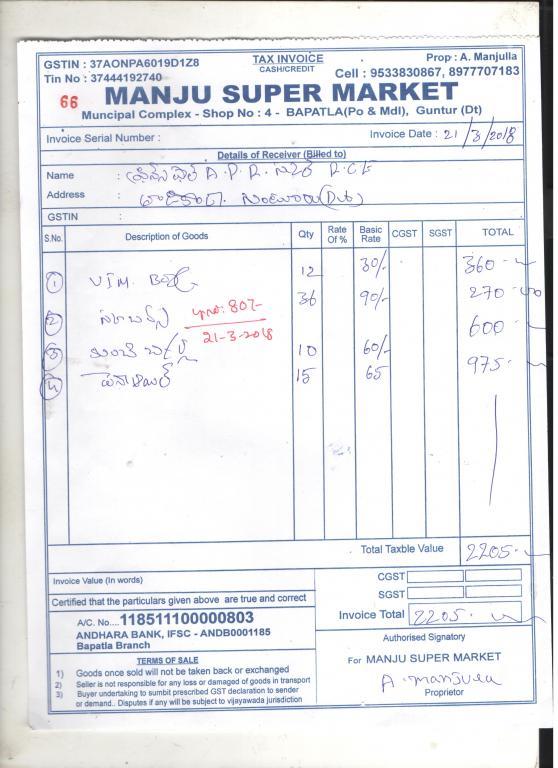 GSTIN : 37AONPA6019D1Z8 TAX INVOICE Prop : A. Manjulla
Tin No : 37444192740 CASH/CREDIT Cell : 9533830867, 8977707183
66 MANJU SUPER MARKET
Muncipal Complex - Shop No : 4 - BAPATLA(Po & Mdl), Guntur (Dt)
Invoice Serial Number : Invoice Date : 21/3/2018
Details of Receiver (Billed to)
Name : A.P.R.
Address :
GSTIN :
S.No. Description of Goods Qty Rate Of % Basic Rate CGST SGST TOTAL
1 VIM 12 30/- 360
2 36 90/- 270
21-3-2018 600
3 10 60/-
4 15 65 975
Total Taxble Value 2205
Invoice Value (In words) CGST
Certified that the particulars given above are true and correct SGST
A/C. No.... 118511100000803 Invoice Total 2205
ANDHARA BANK, IFSC - ANDB0001185
Bapatla Branch Authorised Signatory
TERMS OF SALE For MANJU SUPER MARKET
1) Goods once sold will not be taken back or exchanged
2) Seller is not responsible for any loss or damaged of goods in transport
3) Buyer undertaking to sumbit prescribed GST declaration to sender
or demand.. Disputes if any will be subject to vijayawada jurisdiction
A. Manjula
Proprietor